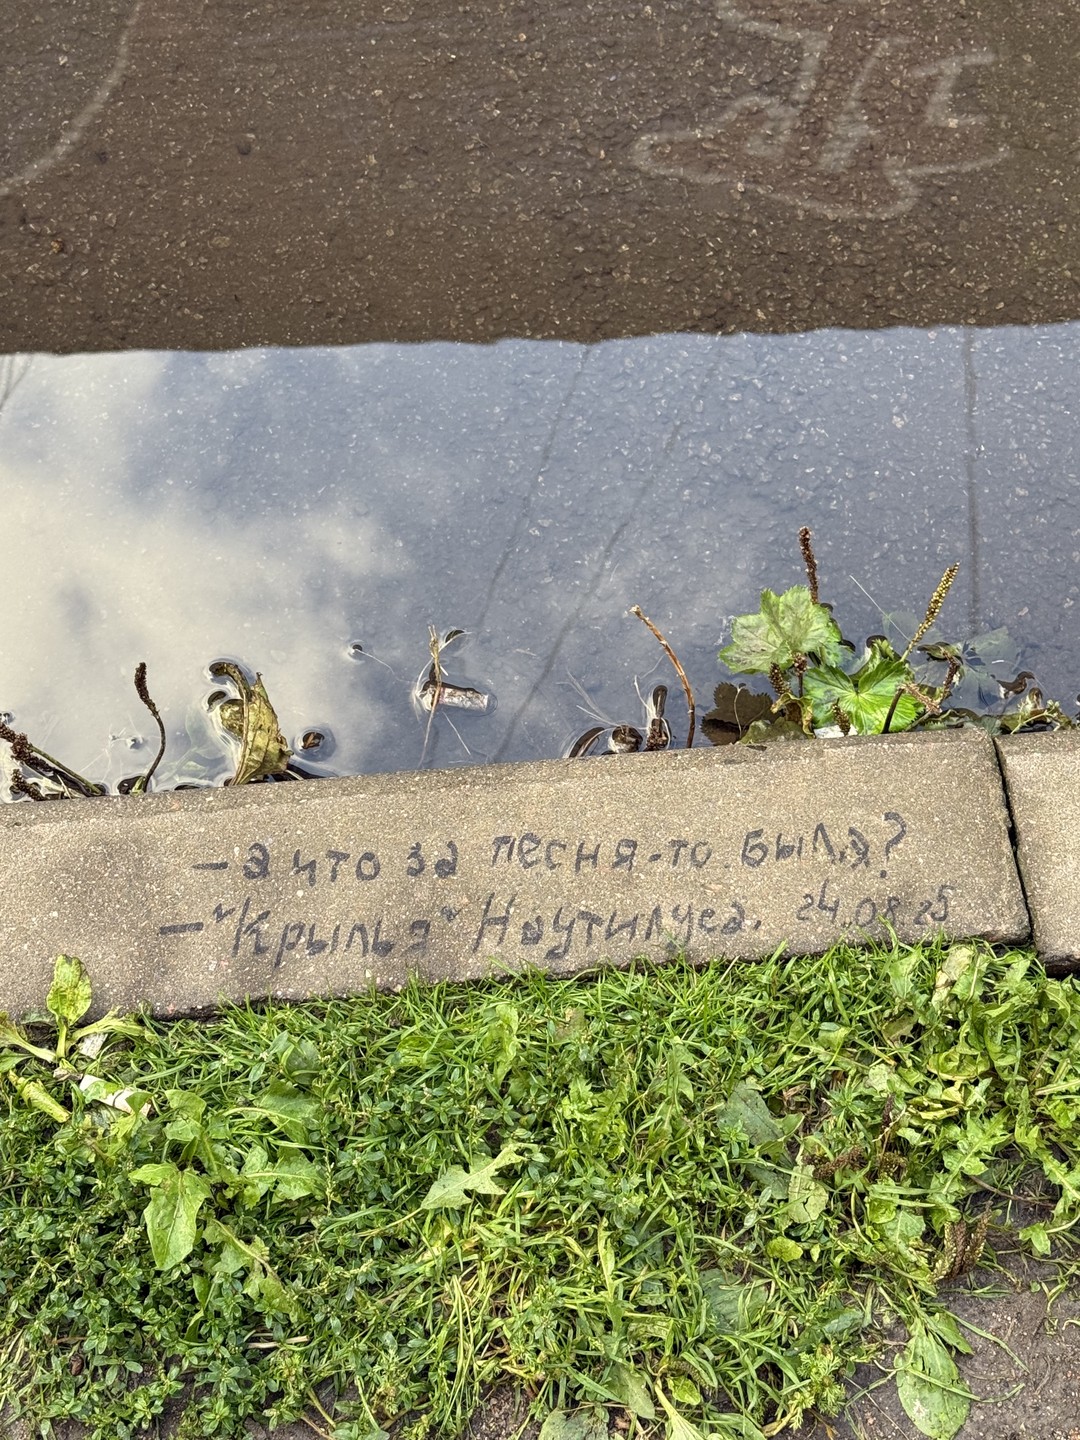 - а что за песня-то была?
- "Крылья" Наутилуса. 24.08.25